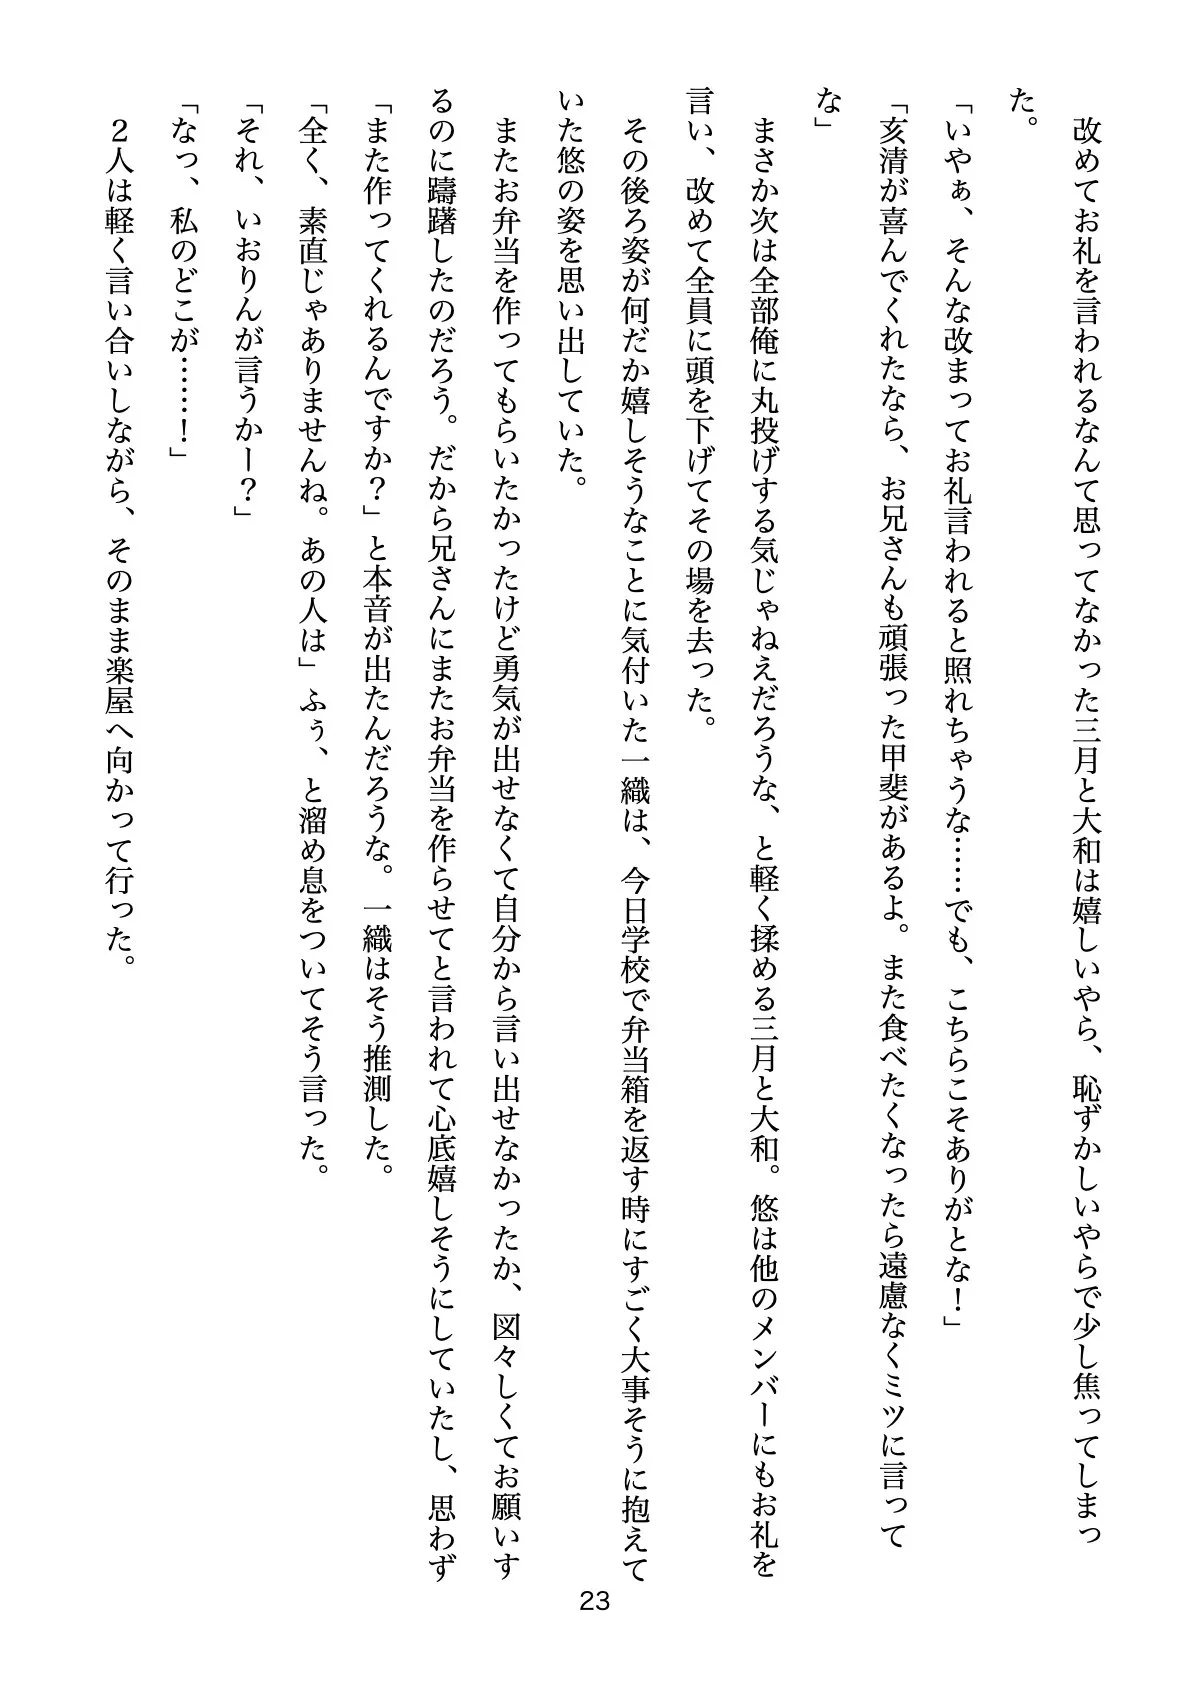 改めてお礼を言われるなんて思ってなかった三月と大和は嬉しいやら、恥ずかしいやらで少し焦ってしまっ
た。
「いやぁ、そんな改まってお礼言われると照れちゃうな……でも、こちらこそありがとな！」
「亥清が喜んでくれたなら、お兄さんも頑張った甲斐があるよ。また食べたくなったら遠慮なくミツに言って
な」
　まさか次は全部俺に丸投げする気じゃねえだろうな、と軽く揉める三月と大和。悠は他のメンバーにもお礼を
言い、改めて全員に頭を下げてその場を去った。
　その後ろ姿が何だか嬉しそうなことに気付いた一織は、今日学校で弁当箱を返す時にすごく大事そうに抱えて
いた悠の姿を思い出していた。
　またお弁当を作ってもらいたかったけど勇気が出せなくて自分から言い出せなかったか、図々しくてお願いす
るのに躊躇したのだろう。だから兄さんにまたお弁当を作らせてと言われて心底嬉しそうにしていたし、思わず
「また作ってくれるんですか？」と本音が出たんだろうな。一織はそう推測した。
「全く、素直じゃありませんね。あの人は」ふぅ、と溜め息をついてそう言った。
「それ、いおりんが言うかー？」
「なっ、私のどこが……！」
　２人は軽く言い合いしながら、そのまま楽屋へ向かって行った。
23